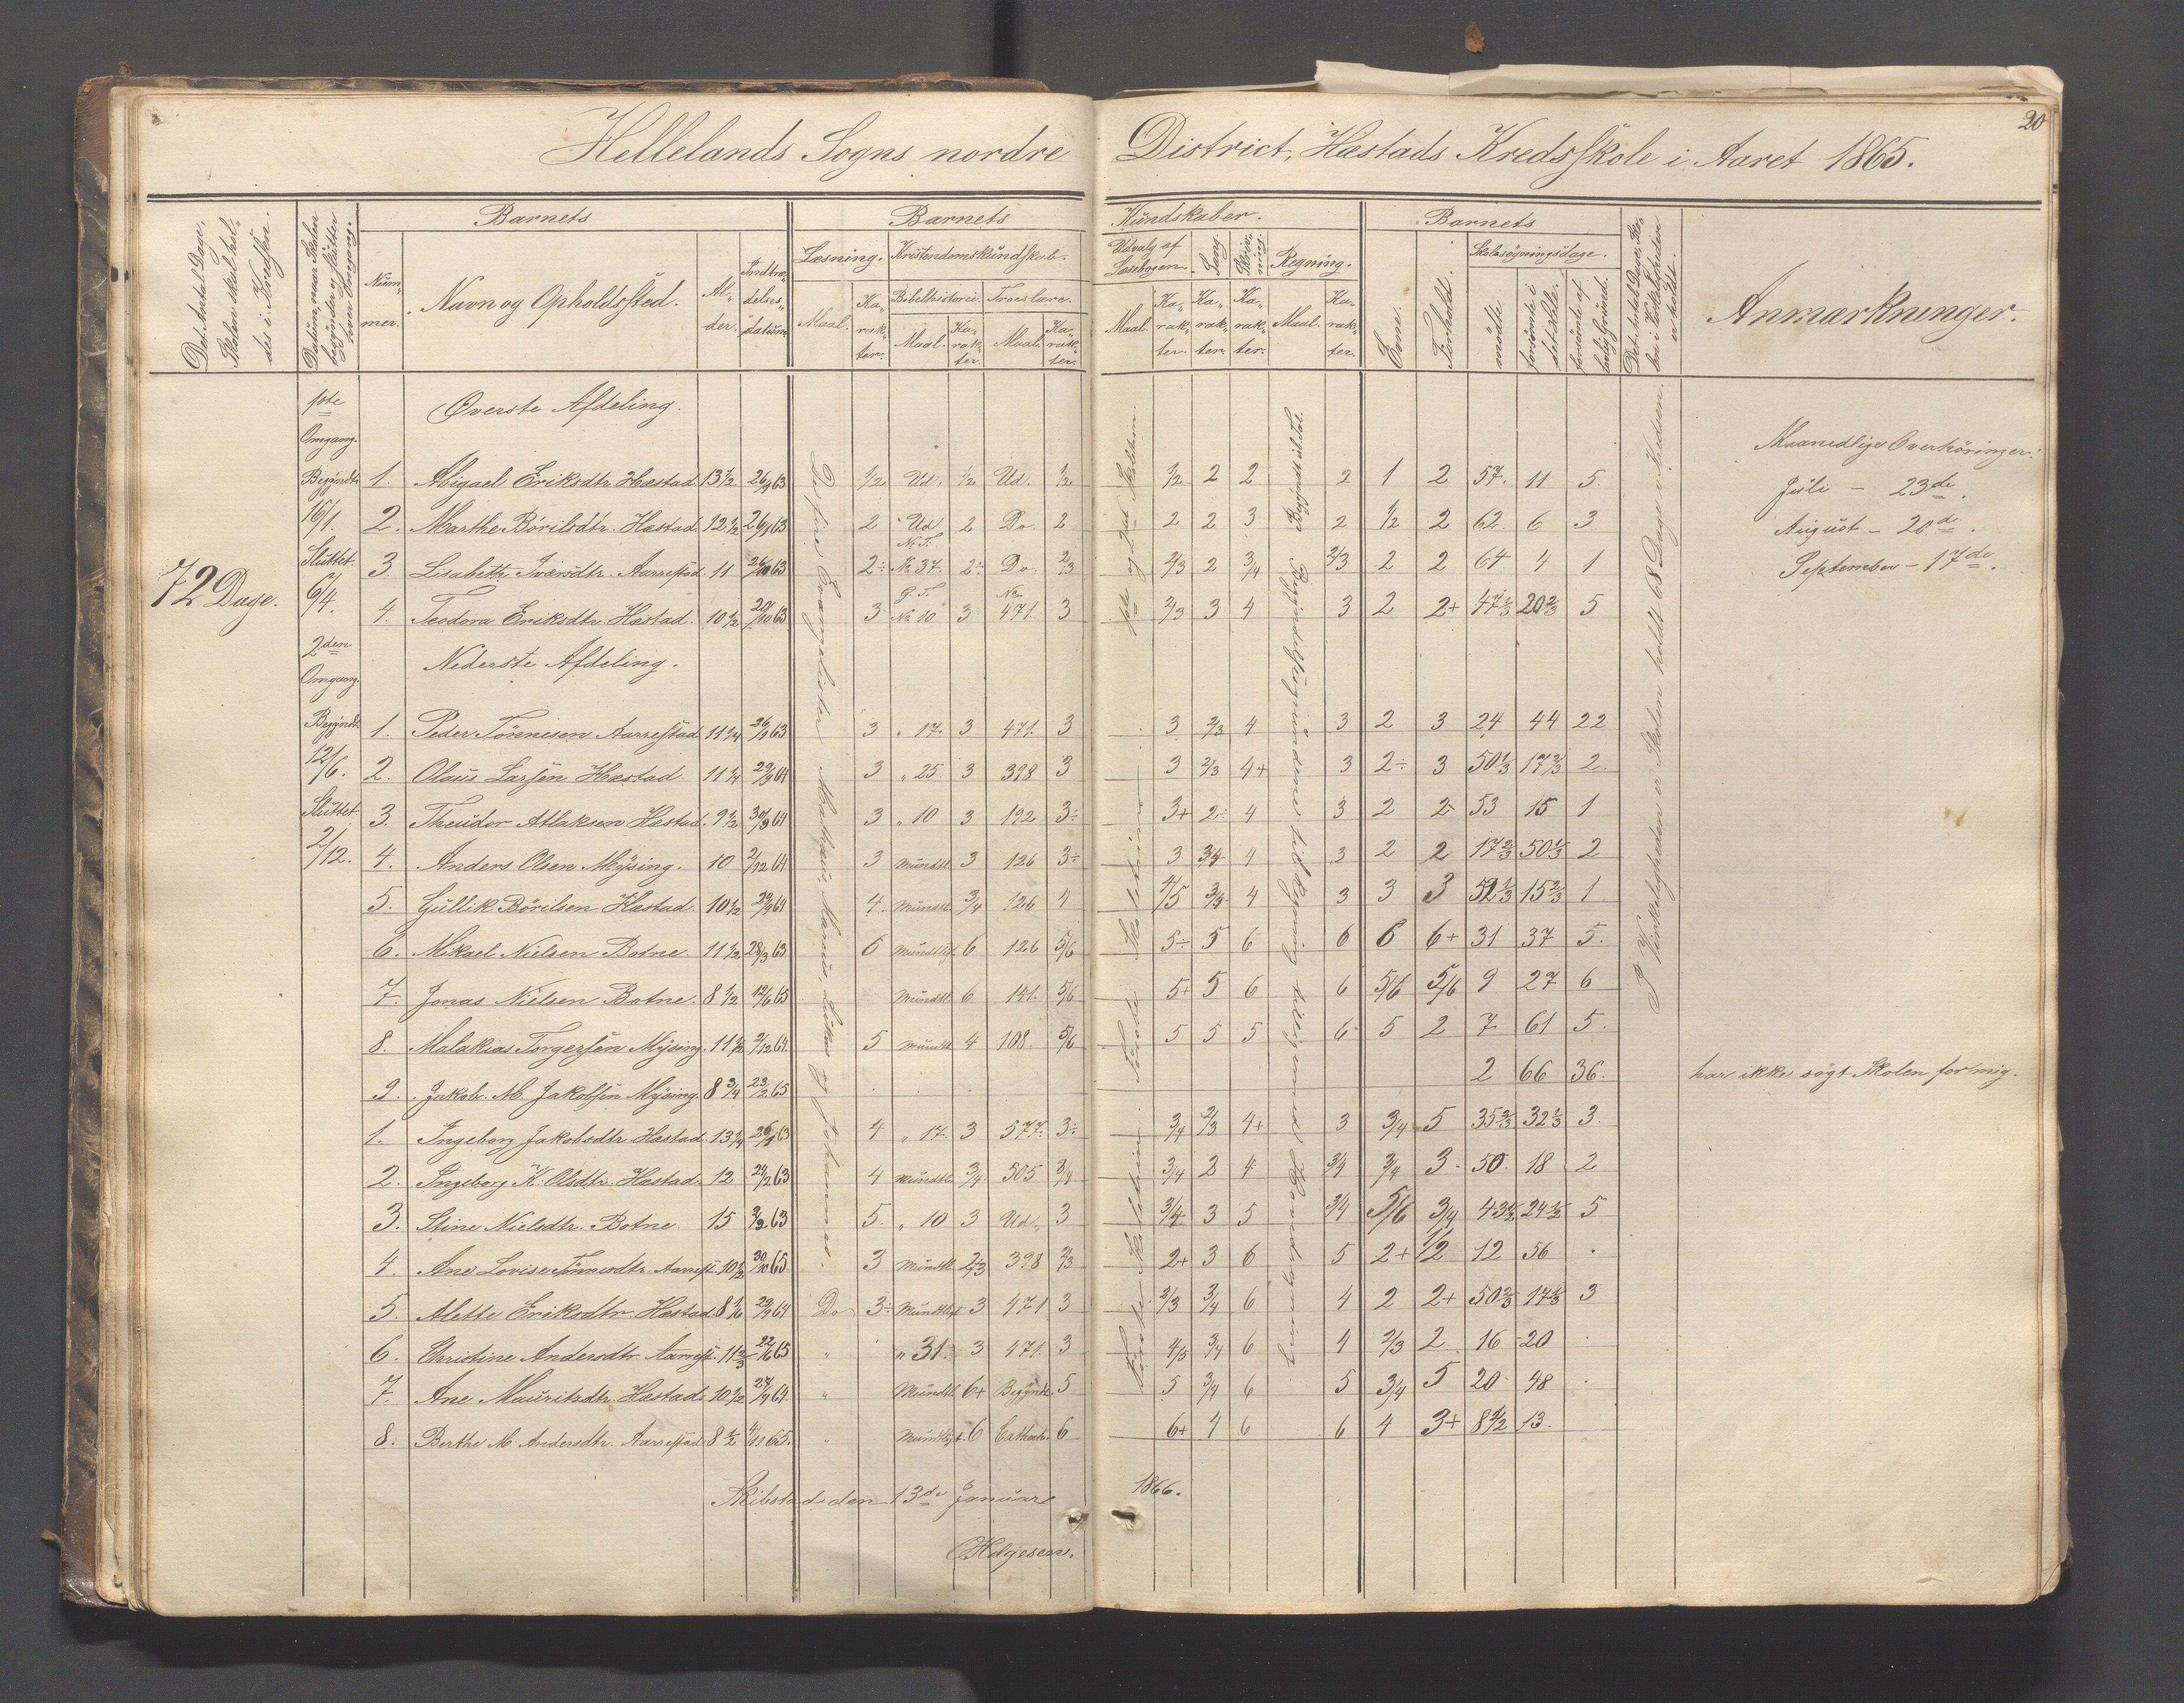 20
Hellelands Sogns nordre District, Hæstads Kredsskole i Aaret 1865.
Det Antal Dage, Skolen skal holdes i Kredsen.
Datum, naar Skolen begynder og slutter hver Omgang.
Barnets
Nummer.
Navn og Opholdssted.
Alder.
Indtrædelsesdatum.
Barnets Kundskaber.
Læsning.
Maal.
Karakter.
Kristendomskundskab.
Bibelhistorie.
Maal.
Karakter.
Troeslære.
Maal.
Karakter.
Udvalg af Læsebogen.
Maal.
Karakter.
Sang.
Karakter.
Skrivning.
Karakter.
Regning.
Maal.
Karakter.
Barnets
Evne.
Forhold.
Skolesøgningsdage.
mødte.
forsømte i det Hele.
forsømte af lovlig Grund.
Det Antal Dage, Skolen i Virkeligheden er holdt.
Anmærkninger.
72 Dage.
1ste Omgang.
Begyndt 16/1.
Sluttet 6/4.
2den Omgang.
Begyndt 12/6.
Sluttet 2/12.
De fire Evangelister Mathæus, Markus, Lukas og Johannes.
I Virkeligheden er Skolen holdt 68 Dage i Kredsen.
Øverste Afdeling.
1. Abigael Eriksdtr. Hæstad 13 1/2 26/9 63 1/2 Ud. 1/2 Ud. 1/2 1/2 2 2 2 1 2 57. 11 5.
2. Marthe Børilsdtr. Hæstad. 12 1/2 26/9 63 2 Ud 2 Do. 2 2 2 3 2 1/2 2 62. 6 3
3. Lisabeth Iversdtr. Aarrestad. 11 63 2÷ N.T. No 37. 2÷ Do. 2/3 2/3 2 3/4 2/3 2 2 64 4 1
4. Teodora Eriksdtr. Hæstad. 10 1/2 63 3 G.T. No 10 3 No 471. 3 2/3 3 4 3 2 2+ 47 1/3 20 2/3 5
Maanedlige Overhøringer:
Juli – 23de.
August – 20de.
September – 17de.
Nederste Afdeling.
1. Peder Tørresen Aarrestad 11 1/4 26/9 63 3 „ 17. 3 471. 3 3 2/3 4 3 2 3 24 44 22
2. Olaus Larsen Hæstad 11 1/4 29/9 64 3 „ 25. 3 398 3 3 2/3 4+ 3 2÷ 3 50 1/3 17 2/3 2.
3. Theudor Atlaksen Hæstad. 9 1/2 30/9 64 3 „ 10 3 192 3÷ 3+ 2÷ 4 3 2 2 53 15 1
4. Anders Olsen Mysing. 10 2/12 64 3 Mundtl. 3 126 3÷ 3 3/4 4 3 2 2 17 2/3 50 1/3 2
5. Gullik Børilsen Hæstad. 10 1/2 29/9 64 4. Mundtl. 3/4 126 4 4/5 3/4 4 3 3 3 52 1/3 15 2/3 1.
6. Mikael Nielsen Botne. 11 1/2 28/3 63 6 Mundtligt 6 126 5/6 5÷ 5 6 6 6 6+ 31 37 5.
7. Jonas Nielsen Botne. 8 1/2 12/6 65 Mundtl. 6 141. 5/6 5+ 5 6 6 5/6 5/6 9 27 6
8. Malakias Torgersen Mysing. 11 1/2 2/12 64. 5 Mundtl. 4 108. 5/6 5 5 5 6 5 2 7 61 5.
9. Jakob M. Jakobsen Mysing. 8 3/4 23/2 65 2 66 36. har ikke søgt Skolen for mig.
1. Ingeborg Jakobsdtr. Hæstad 13 1/4 26/9 63 4 „ 17. 3 577. 3÷ 3/4 2/3 4+ 3 3/4 5 35 2/3 32 1/3 3.
2. Ingeborg K. Olsdtr. Hæstad. 12 63 4 Mundtl. 3/4 505. 3/4 3/4 2 4 3/4 3/4 3 50 18 2
3. Stine Nielsdtr. Botne. 15 63 5. „ 10 3 Ud. 3 3/4 3 5 3/4 5/6 3/4 43 1/2 24 1/2 5
4. Ane Lovise Aarrest. 10 1/2 30/10 65. 3 Mundtl. 2/3 398 2/3 2+ 3 6 5 2+ 1/2 12 56
5. Alette Eriksdtr. Hæstad. 8 1/6 29/9 64 Do 3÷ Mundtligt 3 471 3 2/3 3/4 6 4 2 2+ 50 2/3 17 1/3 3
6. Christine Andersdtr. Aarrest. 11 2/3 22/6 65 „ „ 31. 3 471. 3 4/5 3/4 6 4 2/3 2 16 20
7. Ane Mauritsdtr. Hæstad. 10 1/2 64. „ Mundtl. 6+ Begyndt. 5 5 3/4 6 5 3/4 5 20 48
8. Berthe M. Andersdtr. Aarrestad. 8 1/2 4/11 65. „ Mundtligt. 6 6 6+ 4 6 6 4 3+ 8 1/2 13.
Skibstad den 13de Januar 1866.
Helgesen.